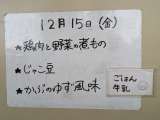 12月15日(金)
★鶏肉と野菜の煮もの
★じゃこ豆
★かぶのゆず風味
ごはん
牛乳